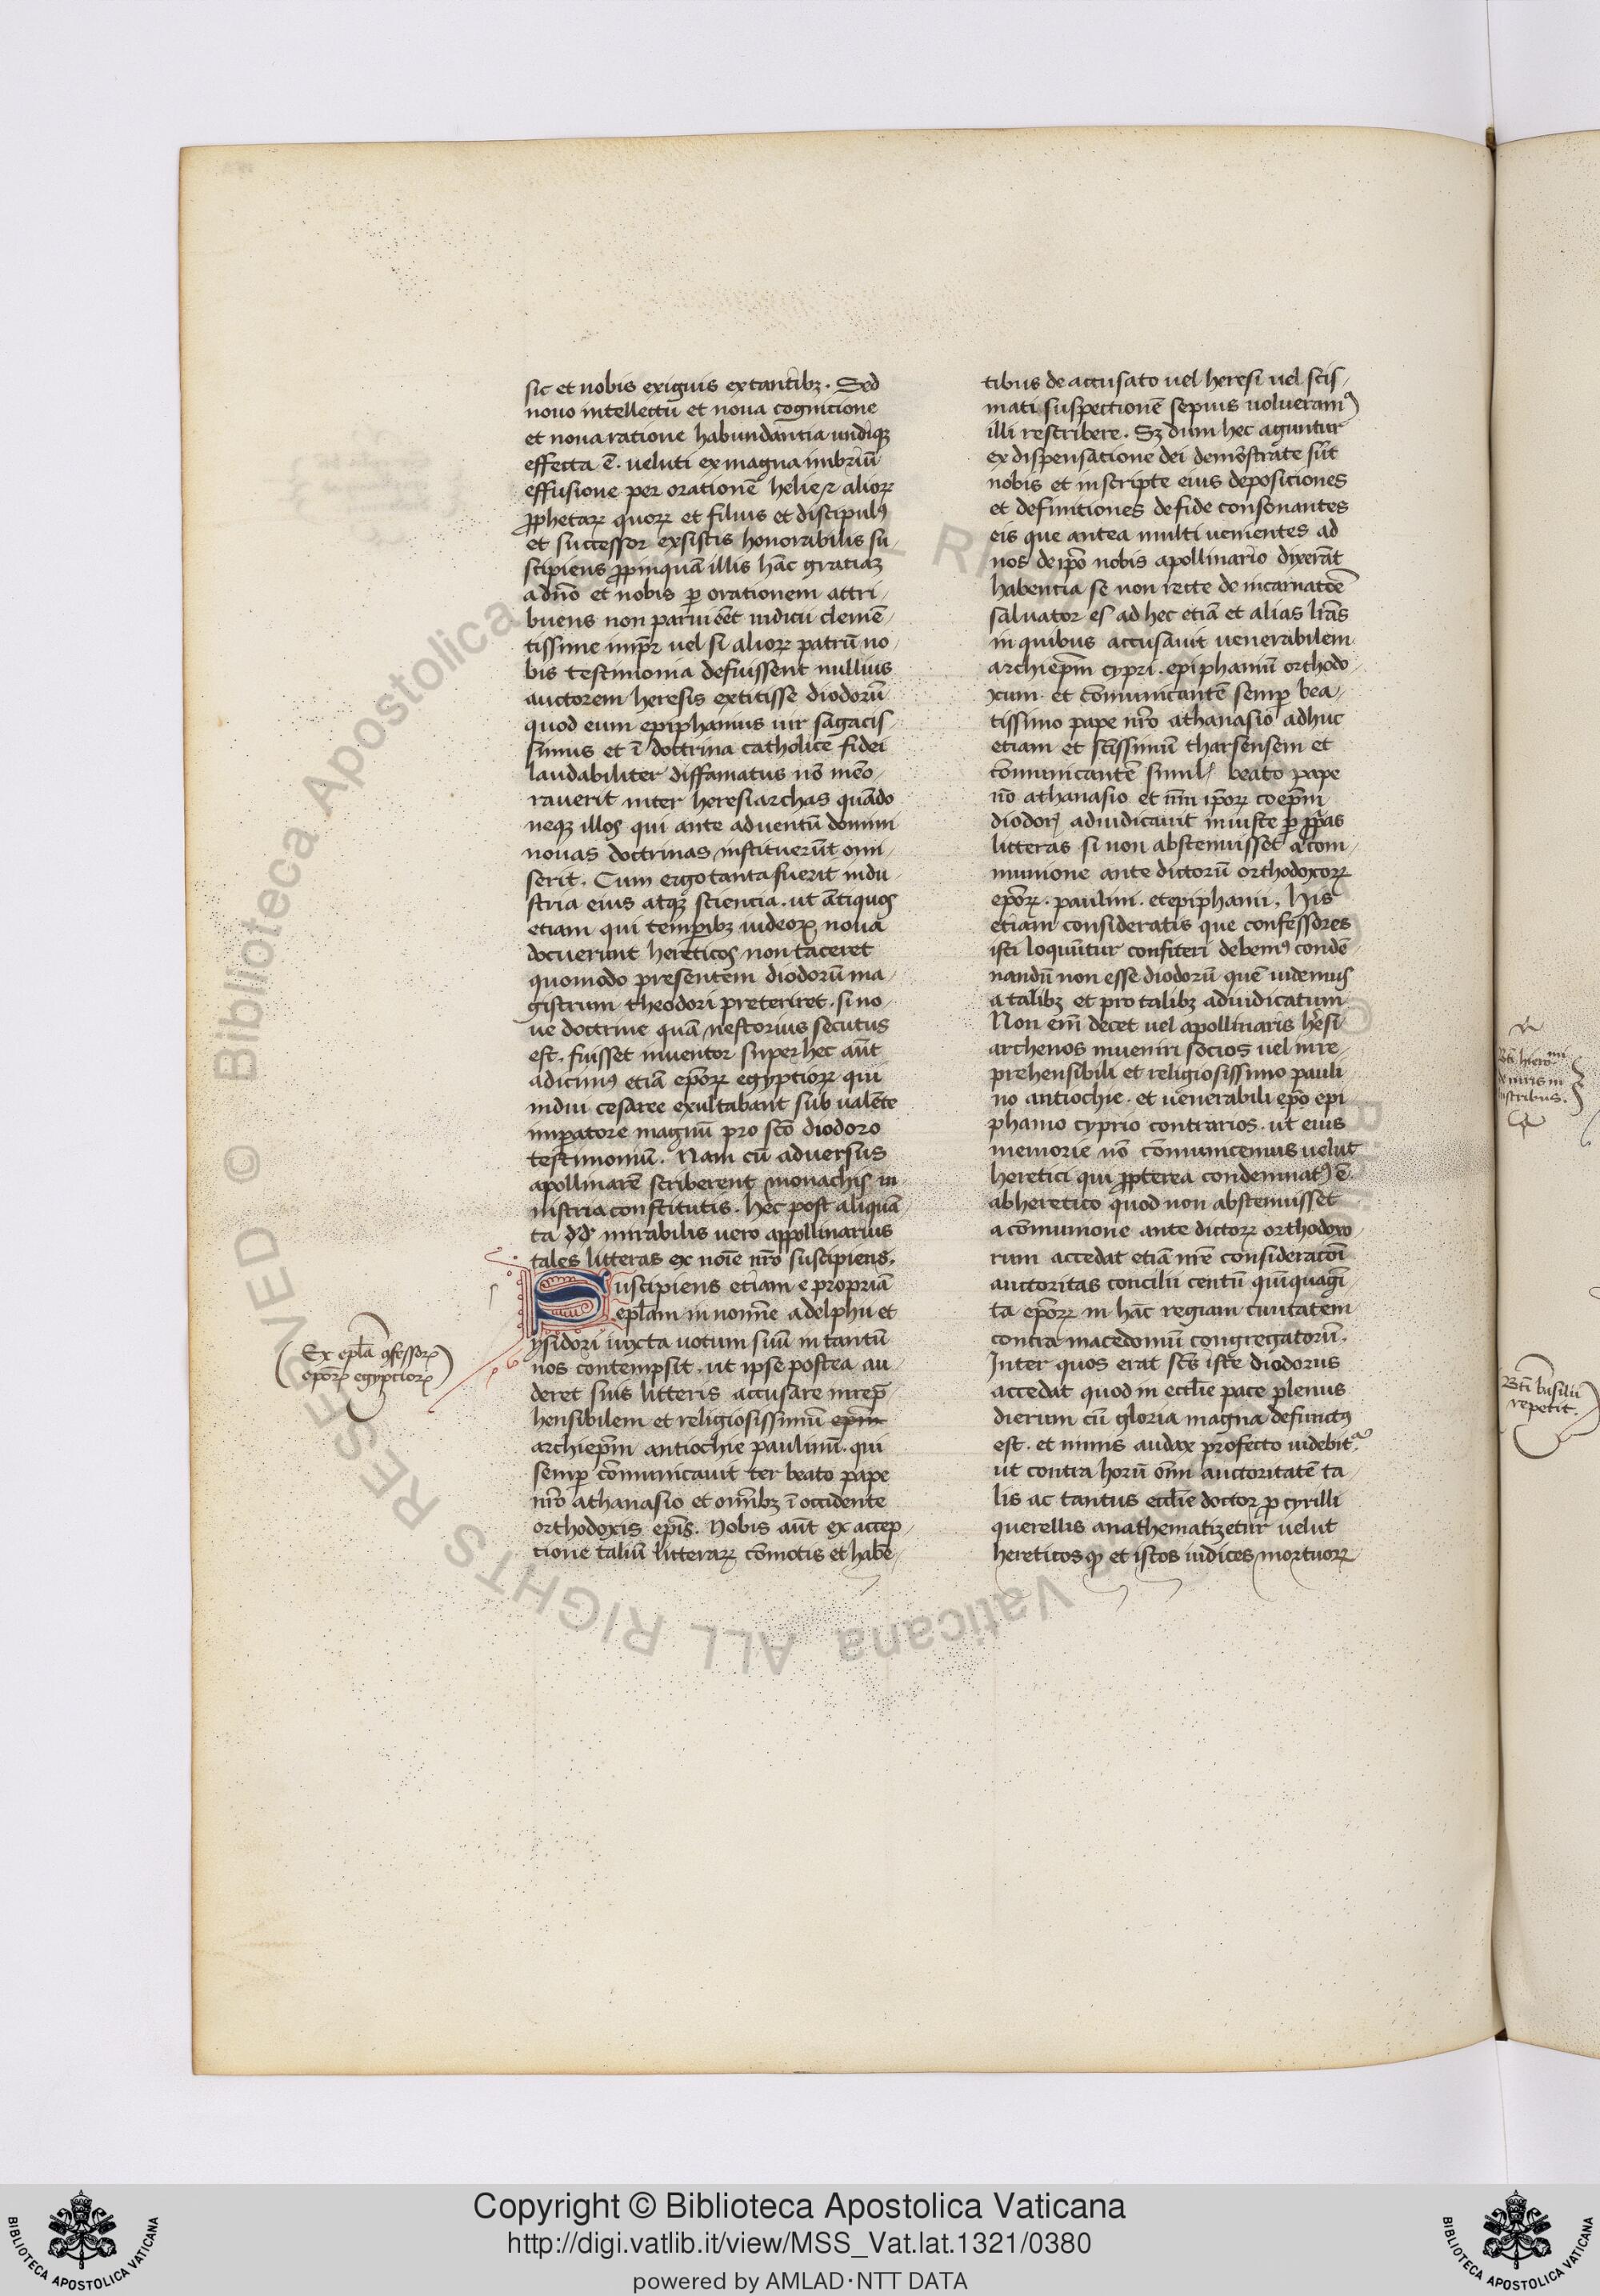 sic et nobis exiguis extantibꝫ. Sed
nouo intellectu et noua cognicione
et noua ratione habundantia undiqꝫ
effecta ē. ueluti ex magna imbriū
effusione per orationē helie ⁊ alioꝝ
ꝓphetaꝝ quoꝝ et filius et discipulꝰ
et successor exsistis honorabilis su-
scipiens ꝓpinquā illis hāc gratiaꝫ
a dn̄o et nobis ꝑ orationem attri-
buens non parui ēēt iudicii clemē-
tissime impr̄ uel si alioꝝ patrū no-
bis testimonia defuissent nullius
auctorem heresis extitisse diodorū
quod eum epiphanius uir sagacis-
simus et ī doctrina catholice fidei
laudabiliter diffamatus nō mēo-
rauerit inter heresiarchas quādo
neqꝫ illos qui ante aduentū domini
nouas doctrinas instituerūt omi-
serit. Cum ergo tanta fuerit indu-
stria eius atqꝫ sciencia. ut ātiquos
etiam qui temꝑibꝫ iudeoꝝ noua
docuerunt hereticos non taceret
quomodo presentem diodorū ma-
gistrum theodori preteriret. si no-
ue doctrine quā nestorius secutus
est. fuisset inuentor super hec aūt
adicimꝰ etiā ep̄oꝝ egyptioꝝ qui
indiu cesaree exultabant sub ualēte
imꝑatore magnū pro sc̄o diodoro
testimoniū. Nam cū aduersus
apollinarē scriberent monachis in
nistria constitutis. hec post aliquā
ta d'd' mirabilis uero appollinarius
tales litteras ex noīe nr̄o suscipiens.
Suscipiens etiam e propriā
ep̄lam in nomīe adelphii et
ysidori iuxta uotum suū in tantū
nos contempsit. ut ipse postea au-
deret suis litteris accusare inrep̄-
hensibilem et religiosissimū ep̄m
archiep̄m antiochie paulinū. qui
semꝑ cōmunicauit ter beato pape
nr̄o athanasio et omībꝫ ī occidente
orthodoxis ep̄is. Nobis aūt ex accep-
tione taliū litteraꝝ cōmotis et habē-
Ex epl̄a ꝯfessoꝝ
ep̄oꝝ egyptioꝝ
tibus de accusato uel heresi uel scis-
mati suspectionē sepius uolueramꝰ
illi rescribere. Sꝫ dum hec aguntur
ex dispensatione dei demōstrate sūt
nobis et inscripte eius deposiciones
et definitiones de fide consonantes
eis que antea multi uenientes ad
nos de ip̄o nobis apollinario dixerāt
habencia se non recte de incarnatōe
saluator es ad hec etiā et alias lr̄as
in quibus accusauit uenerabilem
archiep̄m cypri. epiphaniū orthodo-
xum. et cōmunicantē semꝑ bea-
tissimo pape nr̄o athanasio adhuc
etiam et sc̄issimū tharsensem et
cōmunicantē simil' beato pape
nō athanasio et nr̄m ip̄oꝝ coep̄m
diodorꝰ adiudicauit iniuste ꝑ ꝓprias
litteras si non abstenuisset a com-
munione ante dictorū orthodoxoꝝ
ep̄oꝝ. paulini. et epiphanii. his
etiam consideratis que confessores
isti loquūtur confiteri debemꝰ condē-
nandū non esse diodorū quē uidemus
a talibꝫ et pro talibꝫ adiudicatum
Non em̄ decet uel apollinaris hr̄esi-
archenos inueniri socios uel inre-
prehensibili et religiosissimo pauli-
no antiochie. et uenerabili ep̄o epi
phanio cyprio contrarios. ut eius
memorie nō cōmunicemus uelut
heretici qui ꝓpterea condemnatꝰ ē
ab heretico quod non abstenuisset
a cōmunione ante dictoꝝ orthodoxo
rum accedat etiā nr̄e consideratōi
auctoritas concilii centū quīquagī-
ta ep̄oꝝ in hāc regiam ciuitatem
contra macedoniū congregatorū.
Inter quos erat sc̄s iste diodorus
accedat quod in eccl̄ie pace plenus
dierum cū gloria magna defunctꝰ
est. et nimis audax profecto uidebit᷑
ut contra horū om̄i auctoritatē ta-
lis ac tantus eccl̄ie doctor ꝑ cyrilli
querellis anathematizetur uelut
hereticos ꝙ et istos iudices mortuoꝝ
Bt̄i basilii
reperit.
Copyright © Biblioteca Apostolica Vaticana
http://digi.vatlib.it/view/MSS_Vat.lat.1321/0380
powered by AMLAD·NTT DATA
BIBLIOTECA APOSTOLICA VATICANA
BIBLIOTECA APOSTOLICA VATICANA
© Biblioteca Apostolica Vaticana ALL RIGHTS RESERVED